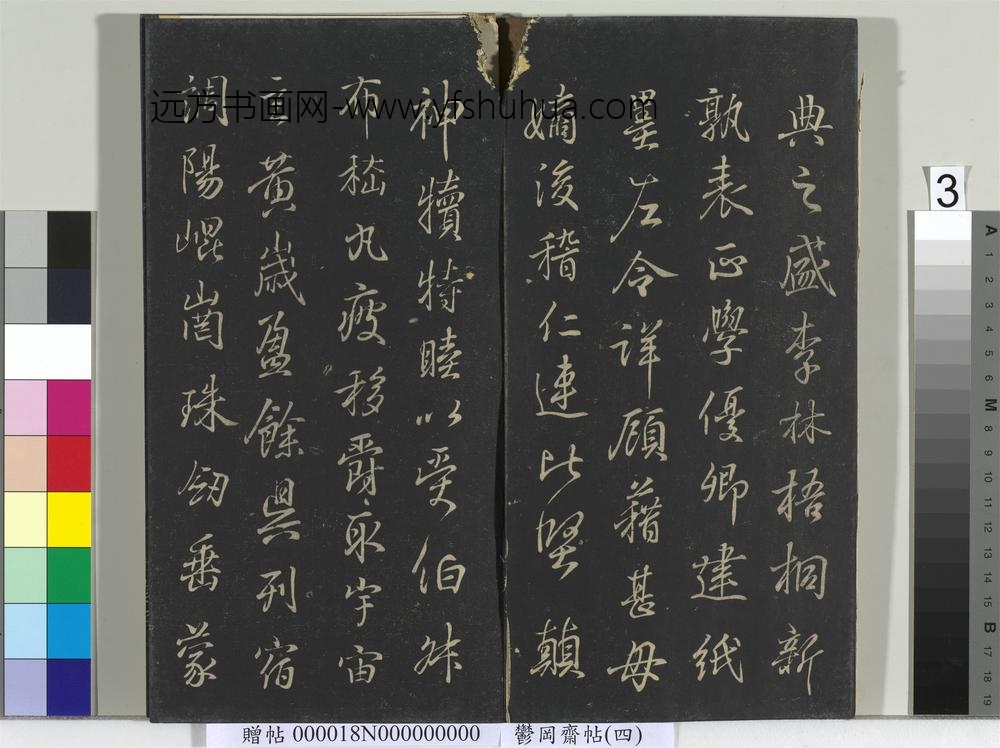 典之盛李林梧桐新
孰表正學優卿建紙
墨左令詳顧藉甚毋
嫡後稽仁連比堅顛
神犢特睦以受伯叔
布嵇丸疲移爵取宇宙
玄黃歲盈餘具列宿
調陽崐崗珠釰垂蒙
远方书画网-www.yfshuhua.com
3
贈帖 000018N000000000 鬱岡齋帖(四)
A 1 2 3 4 5 6 M 8 9 10 11 12 13 14 15 B 17 18 19